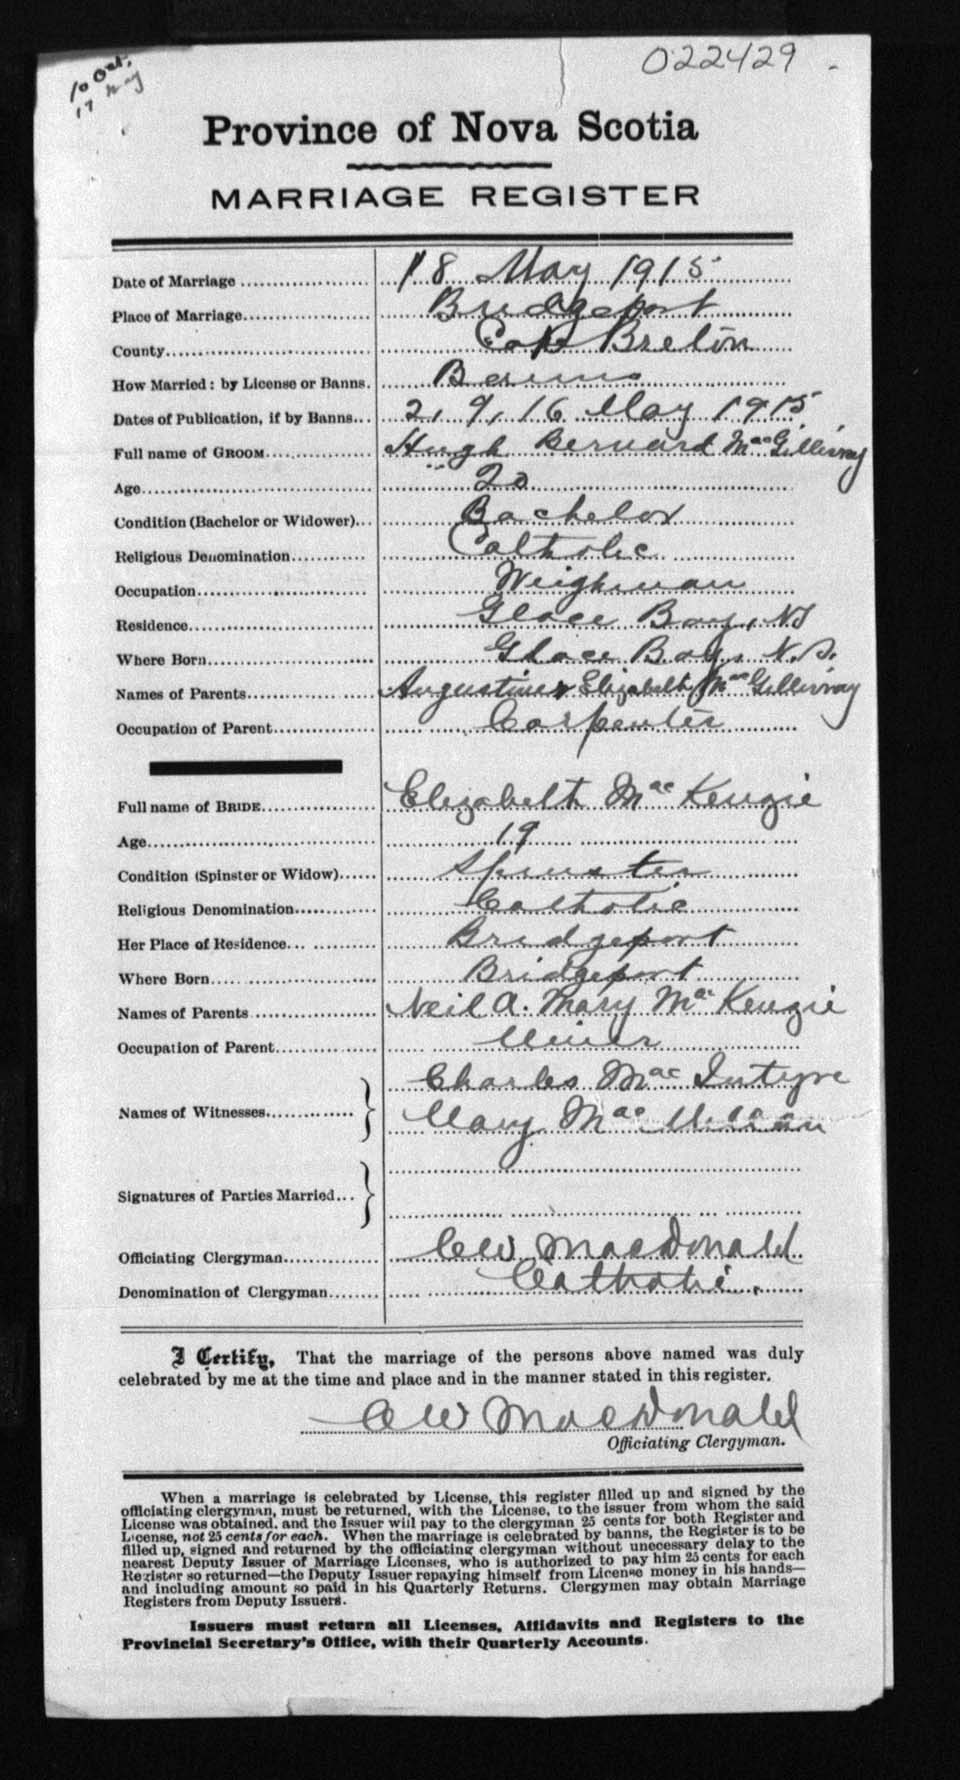 10 Oct.
17 May
022429
Province of Nova Scotia
MARRIAGE REGISTER
Date of Marriage 18 May 1915
Place of Marriage Bridgeport
County Cape Breton
How Married: by License or Banns. Banns
Dates of Publication, if by Banns 2, 9, 16 May 1915
Full name of GROOM Hugh Bernard MacGillivray
Age 20
Condition (Bachelor or Widower) Bachelor
Religious Denomination Catholic
Occupation Weighman
Residence Glace Bay, NS
Where Born Glace Bay, N.S.
Names of Parents Augustine & Elizabeth MacGillivray
Occupation of Parent Carpenter
Full name of BRIDE Elizabeth MacKenzie
Age 19
Condition (Spinster or Widow) Spinster
Religious Denomination Catholic
Her Place of Residence Bridgeport
Where Born Bridgeport
Names of Parents Neil A. Mary MacKenzie
Occupation of Parent Miner
Charles MacIntyre
Names of Witnesses
Mary Mac Millan
Signatures of Parties Married
Officiating Clergyman CW MacDonald
Denomination of Clergyman Catholic.
I Certify, That the marriage of the persons above named was duly
celebrated by me at the time and place and in the manner stated in this register.
CW MacDonald
Officiating Clergyman.
When a marriage is celebrated by License, this register filled up and signed by the
officiating clergyman, must be returned, with the License, to the issuer from whom the said
License was obtained. and the Issuer will pay to the clergyman 25 cents for both Register and
License, not 25 cents for each. When the marriage is celebrated by banns, the Register is to be
filled up, signed and returned by the officiating clergyman without unecessary delay to the
nearest Deputy Issuer of Marriage Licenses, who is authorized to pay him 25 cents for each
Register so returned—the Deputy Issuer repaying himself from License money in his hands—
and including amount so paid in his Quarterly Returns. Clergymen may obtain Marriage
Registers from Deputy Issuers.
Issuers must return all Licenses, Affidavits and Registers to the
Provincial Secretary's Office, with their Quarterly Accounts.